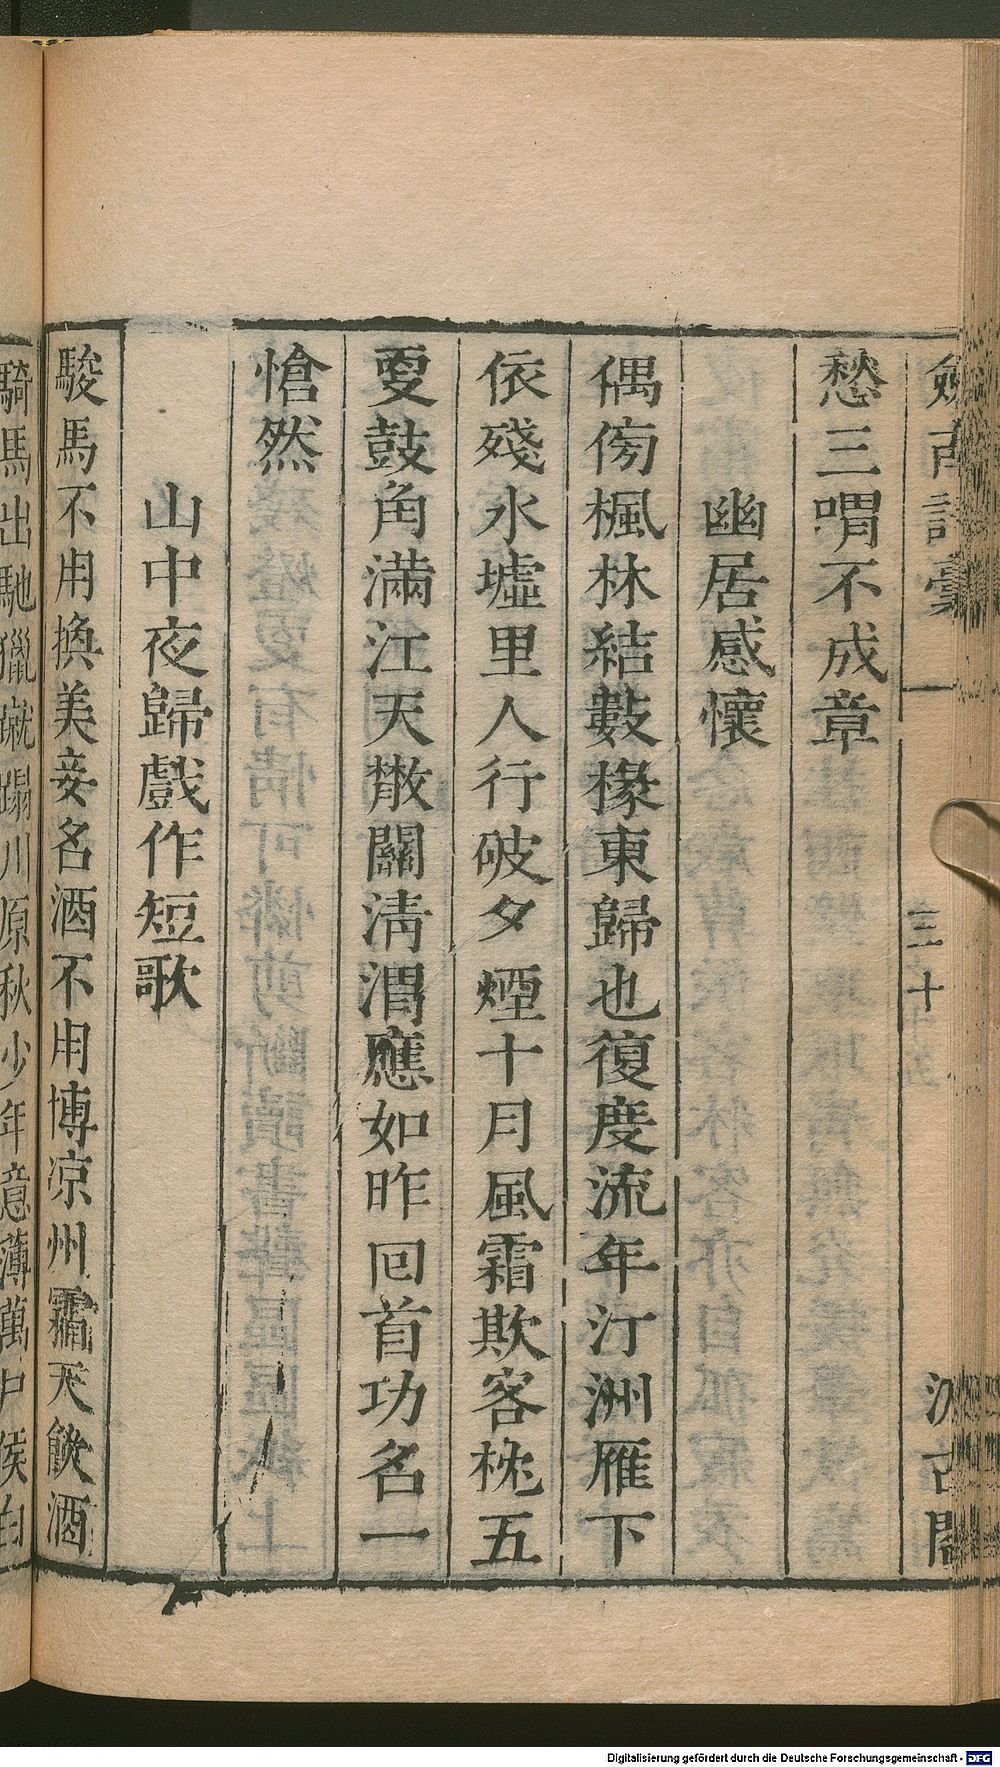 劒南詩稾
一
三十
汲古閣
愁三喟不成章
幽居感懷
偶傍楓林結數椽東歸也復度流年汀洲雁下
依殘水墟里人行破夕煙十月風霜欺客枕五
更鼓角滿江天散關清渭應如昨回首功名一
愴然
山中夜歸戲作短歌
駿馬不用換美妾名酒不用博凉州霜天飲酒
騎馬出馳獵蹴蹋川原秋少年意薄萬户侯白
Digitalisierung gefördert durch die Deutsche Forschungsgemeinschaft - DFG